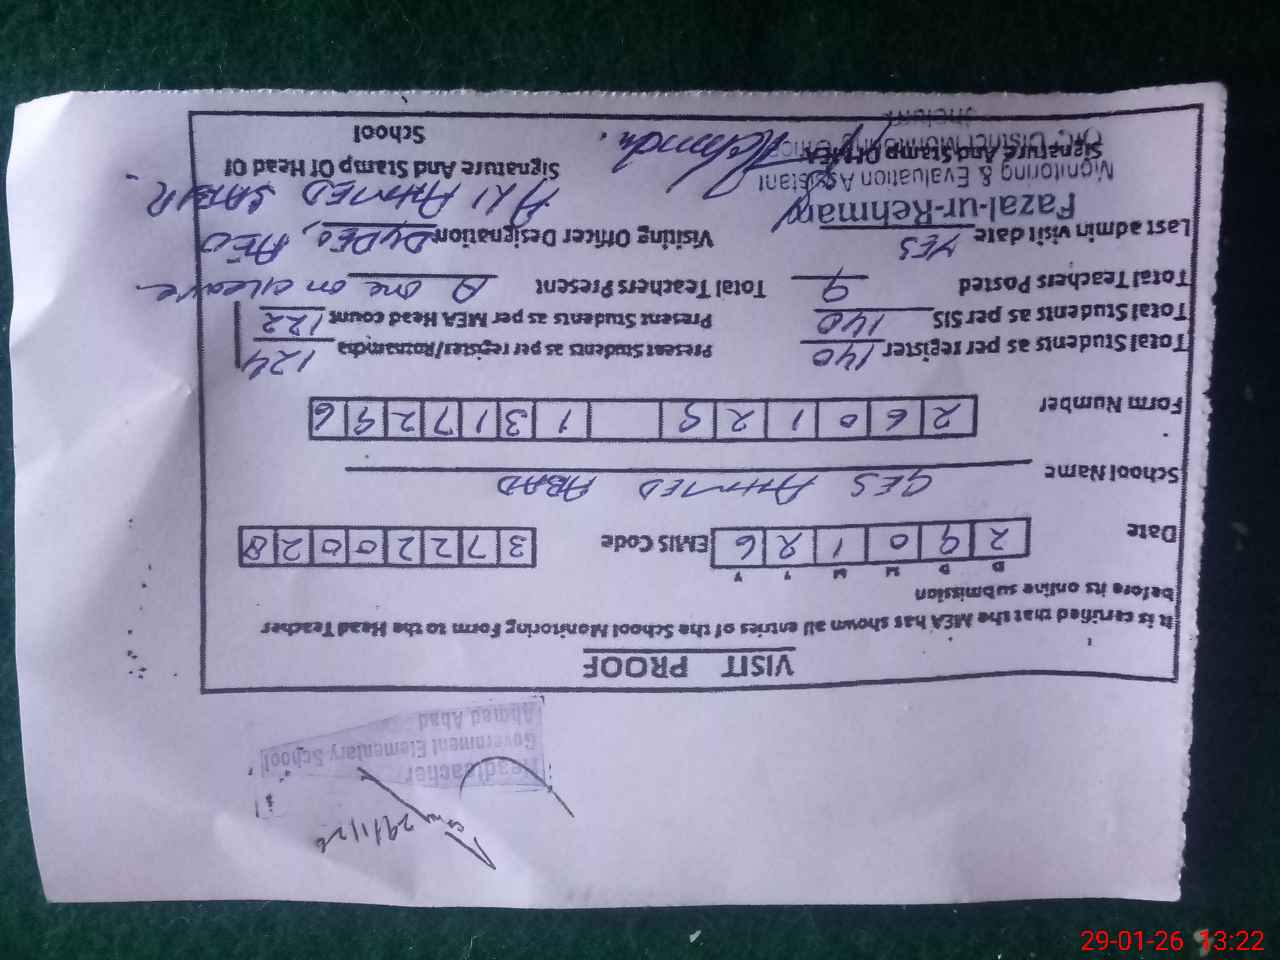 Headteacher
Government Elementary School
Ahmed Abad
VISIT PROOF
It is certified that the MEA has shown all entries of the School Monitoring Form to the Head Teacher
before its online submission
D D M M Y Y
Date 2 9 0 1 2 6 EMIS Code 3 7 2 2 0 0 2 8
School Name GES AHMED ABAD
Form Number 2 6 0 1 2 9 1 3 1 7 2 9 6
Total Students as per register 140 Present Students as per register/Roznamcha 124
Total Students as per SIS 140 Present Students as per MEA Head count 122
Total Teachers Posted 9 Total Teachers Present 8 one on cleave
Last admin visit date YES Visiting Officer Designation DyDEO, AEO
Fazal-ur-Rehman ALI AHMED SABIR
Monitoring & Evaluation Assistant
Signature And Stamp Of MEA Signature And Stamp Of Head Of
School
29-01-26 13:22